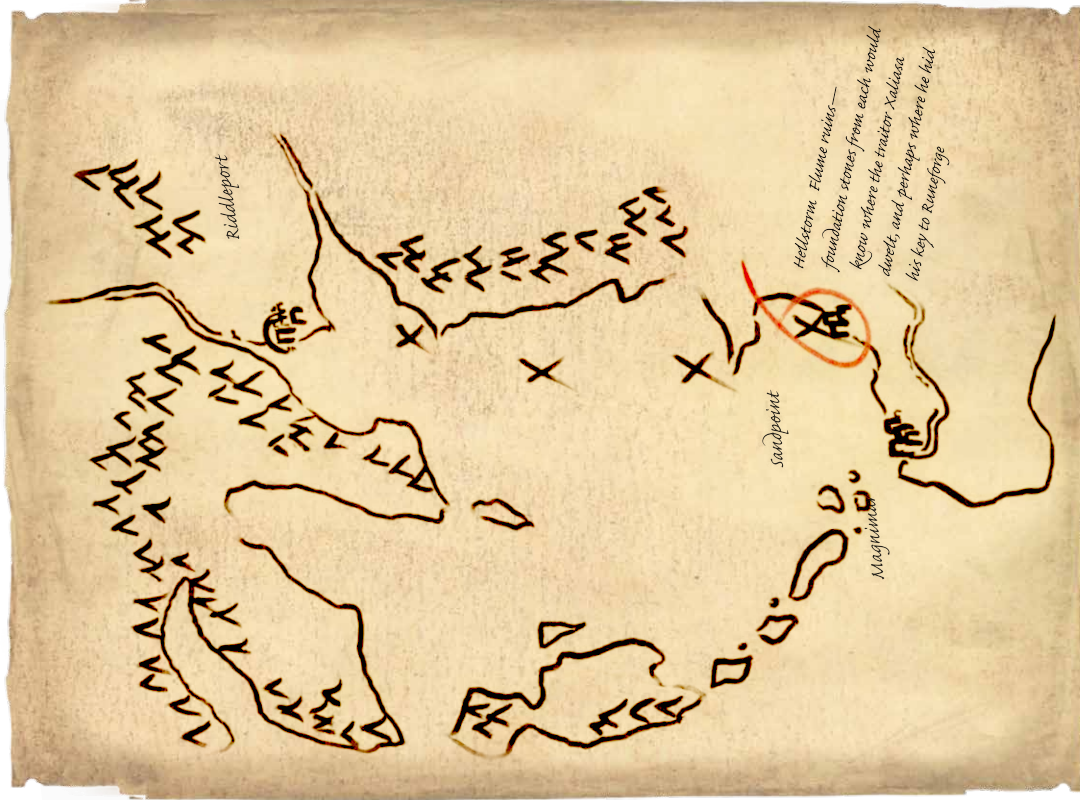 Riddleport
Hellstorm Flume ruins—
foundation stones from each would
know where the traitor Xaliasa
dwelt, and perhaps where he hid
his key to Runeforge
Sandpoint
Magnimar